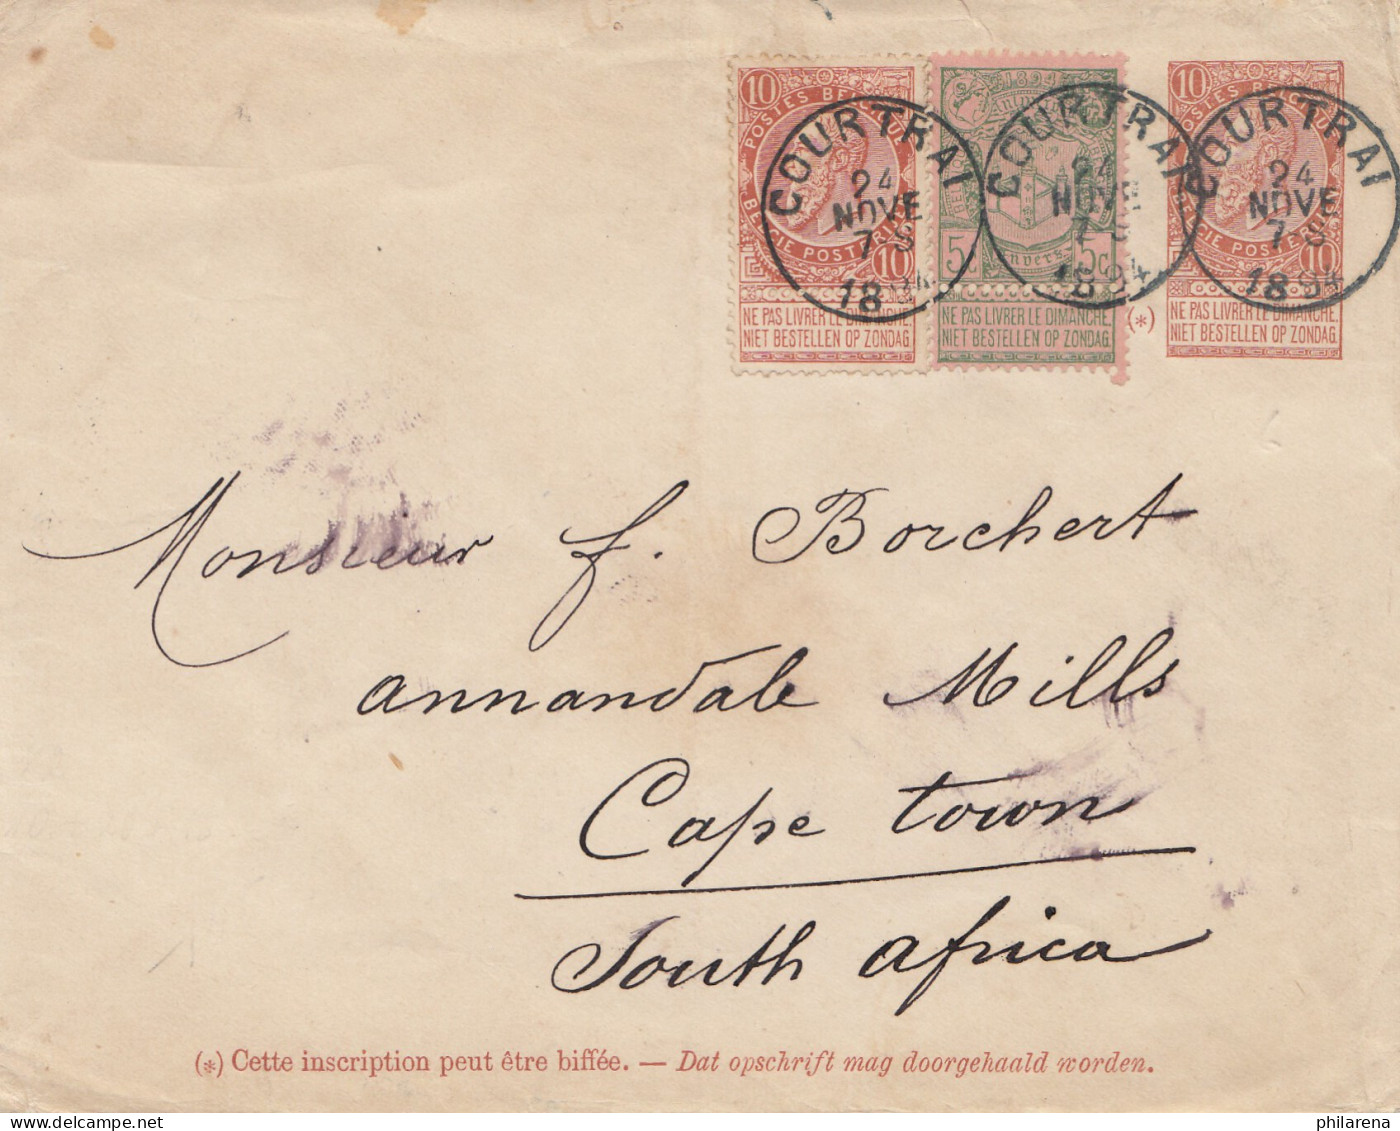 10
POSTES BELGIQUE
BELGIE POSTERIJEN
10
NE PAS LIVRER LE DIMANCHE.
NIET BESTELLEN OP ZONDAG
1894
5c 5c
NE PAS LIVRER LE DIMANCHE
NIET BESTELLEN OP ZONDAG
(*)
10
10
NE PAS LIVRER LE DIMANCHE.
NIET BESTELLEN OP ZONDAG.
COURTRAI
24
NOVE
7-S
18
COURTRAI
24
NOVE
7-S
1894
COURTRAI
24
NOVE
7-S
1894
Monsieur F. Borchert
Annandale Mills
Cape Town
South Africa
(*) Cette inscription peut être biffée. — Dat opschrift mag doorgehaald worden.
delcampe.net
philarena